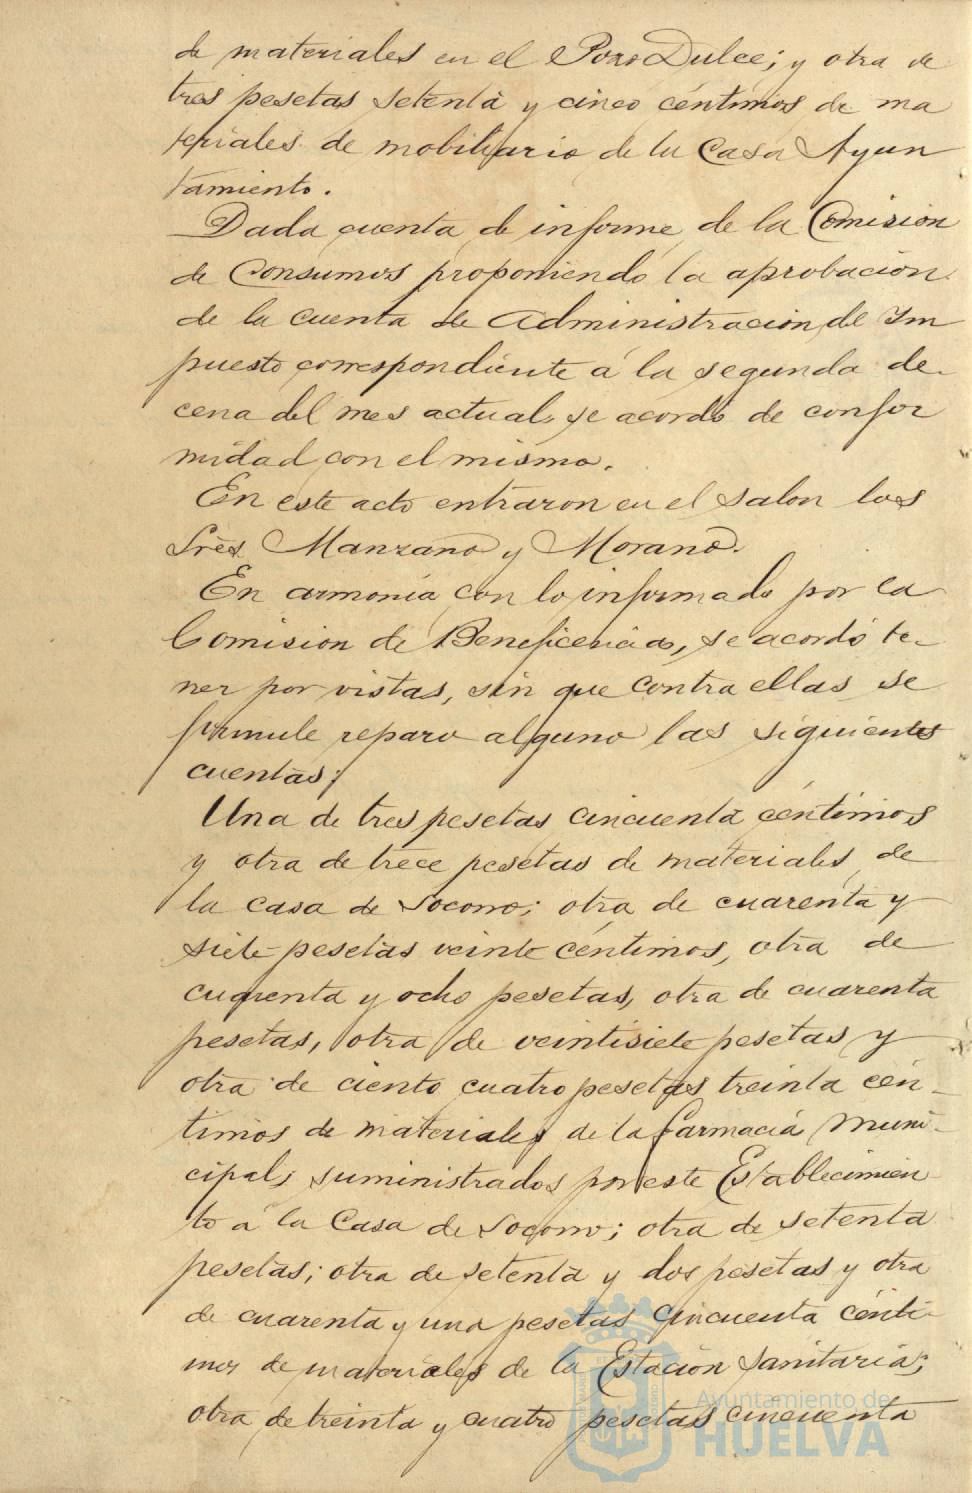 de materiales en el Pozo Dulce; y otra de
tres pesetas setenta y cinco céntimos de ma
teriales de mobiliario de la Casa Ayun
tamiento.
Dada cuenta de informe de la Comision
de Consumos proponiendo la aprobacion
de la cuenta de Administracion del Im
puesto correspondiente á la segunda de-
cena del mes actual, se acordó de confor
midad con el mismo.
En este acto entraron en el salon los
Sres. Manzano y Morano.
En armonía con lo informado por la
Comision de Beneficencia, se acordó te-
ner por vistas, sin que contra ellas se
formule reparo alguno las siguientes
cuentas;
Una de tres pesetas cincuenta céntimos
y otra de trece pesetas de materiales de
la Casa de Socorro; otra de cuarenta y
siete pesetas veinte céntimos, otra de
cuarenta y ocho pesetas, otra de cuarenta
pesetas, otra de veintisiete pesetas y
otra de ciento cuatro pesetas treinta cén-
timos de materiales de la farmacia Muni-
cipal, suministrados por este Establecimien
to á la Casa de Socorro; otra de setenta
pesetas; otra de setenta y dos pesetas y otra
de cuarenta y una pesetas cincuenta cénti-
mos de materiales de la Estación Sanitaria;
otra de treinta y cuatro pesetas cincuenta
Ayuntamiento de
HUELVA